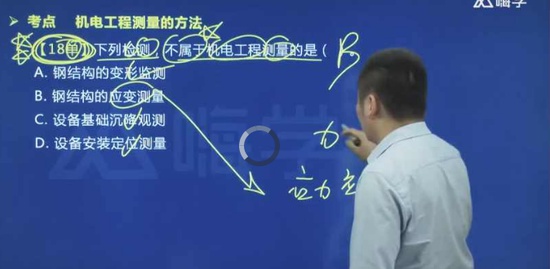 嗨学
考点 机电工程测量的方法
【18单】下列检测,不属于机电工程测量的是(
A. 钢结构的变形监测
B. 钢结构的应变测量
C. 设备基础沉降观测
D. 设备安装定位测量
B
力
应力
嗨学